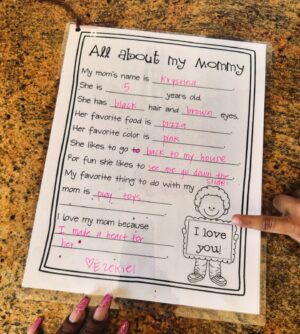 All about my Mommy
My mom's name is Krystina
She is 5 years old.
She has black hair and brown eyes.
Her favorite food is pizza.
Her favorite color is pink.
She likes to go to back to my house
For fun she likes to see me go down the
slide.
My favorite thing to do with my
mom is play toys
I love my mom because
I make a heart for
her
♡Ezekiel
I love
you!